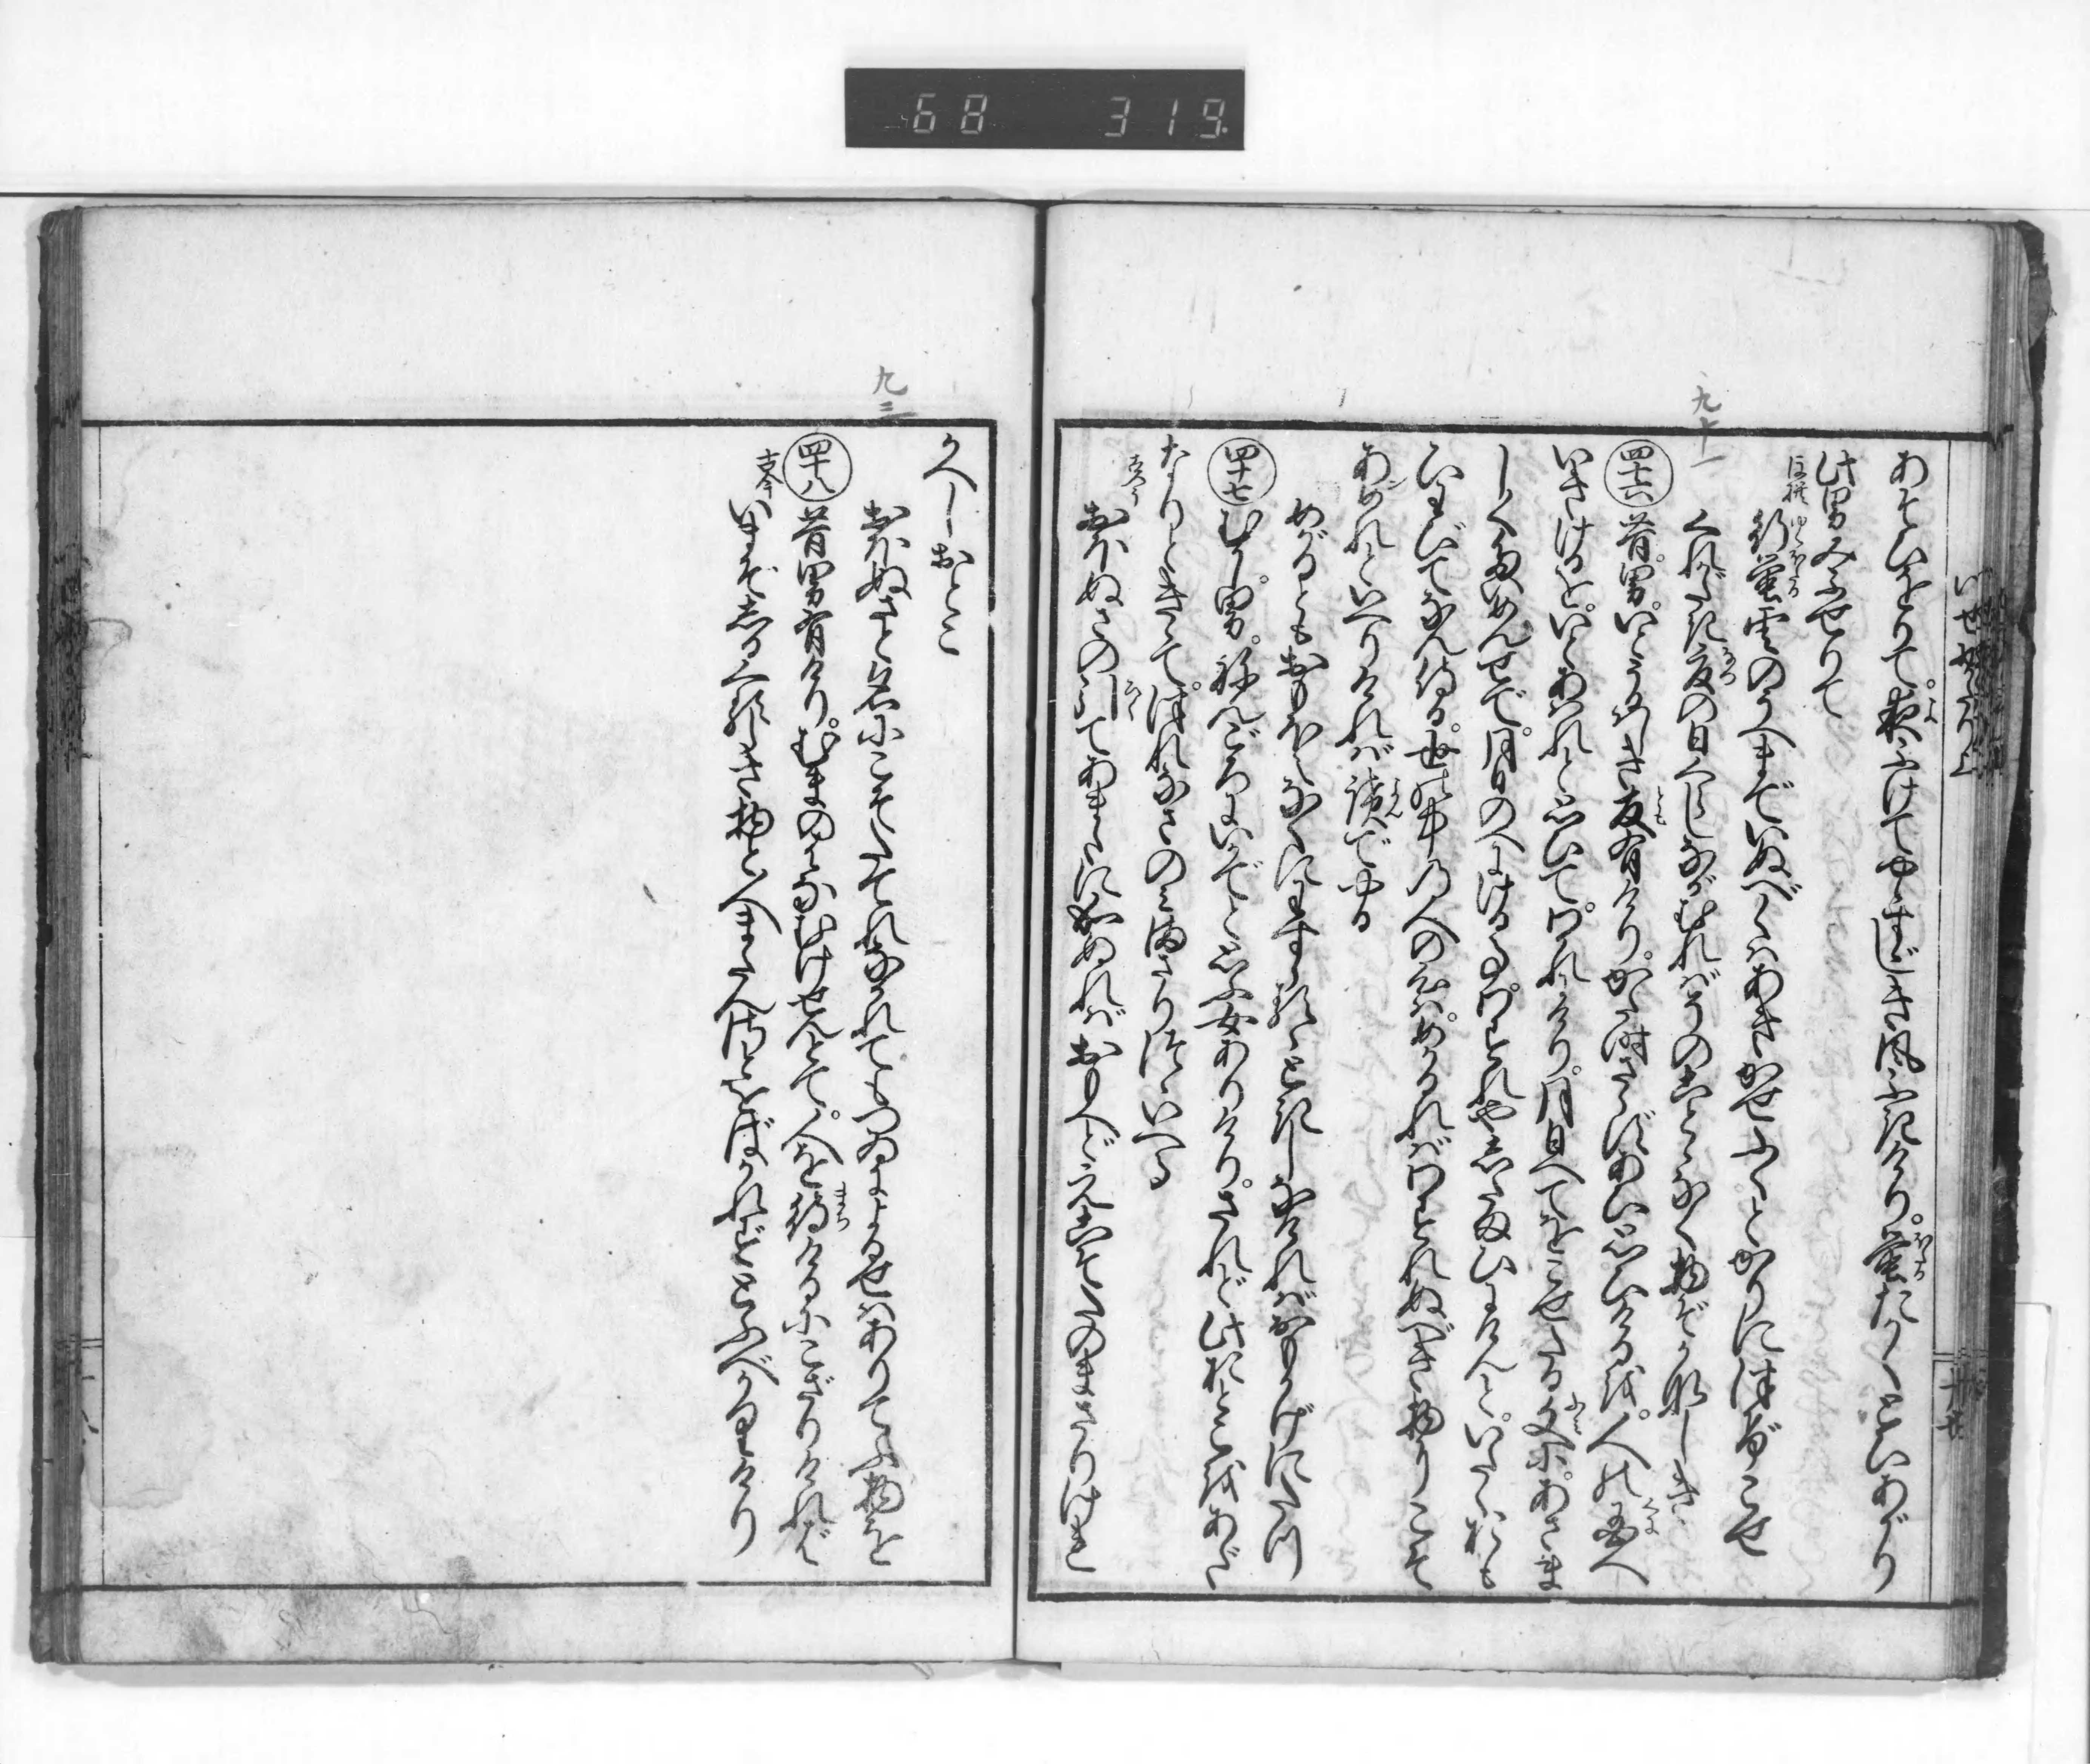 68 319
いせ物がたり上
あそびをりて。夜ふけてやゝすゞしき風ふきけり。蛍たかくとびあがり
此男みふせりて
行蛍雲のうへまでいぬべくはあきかぜふくとかりにつげこせ
くれがたき夏の日ぐらしながむればそのことゝなく物ぞかなしき
九十一
四十六 昔。男。いとうるはしき友有けり。かた時さらずあい思ひけるを。人の国へ
いきけるを。いとあはれと思ひて。わかれけり。月日へてをこせたる文に。あさま
しくたいめんせで。月日のへにけること。わすれやし給ひにけんと。いたくおも
ひわびてなん侍る。世中の人の心は。めかるればわすれぬべき物にこそ
あめれといへりければ読てやる
めかるともおもほえなくにわすらるゝ時しなければおもかげにたつ
四十七 むかし。男。ねんごろにいかでと思ふ女ありけり。されど此おとこをあだ
なりときゝて。つれなさのみまさりつゝいへる
おほぬさの引てあまたに成ぬればおもへどえこそたのまざりけれ
かへしおとこ
九三
おほぬさと名にこそたてれながれてもつゐによるせはありてふ物を
四十八 昔男有けり。むまのはなむけせんとて。人を待けるにこざりければ
古今 いまぞしるくるしき物と人またん里をばかれずとふべかりけり